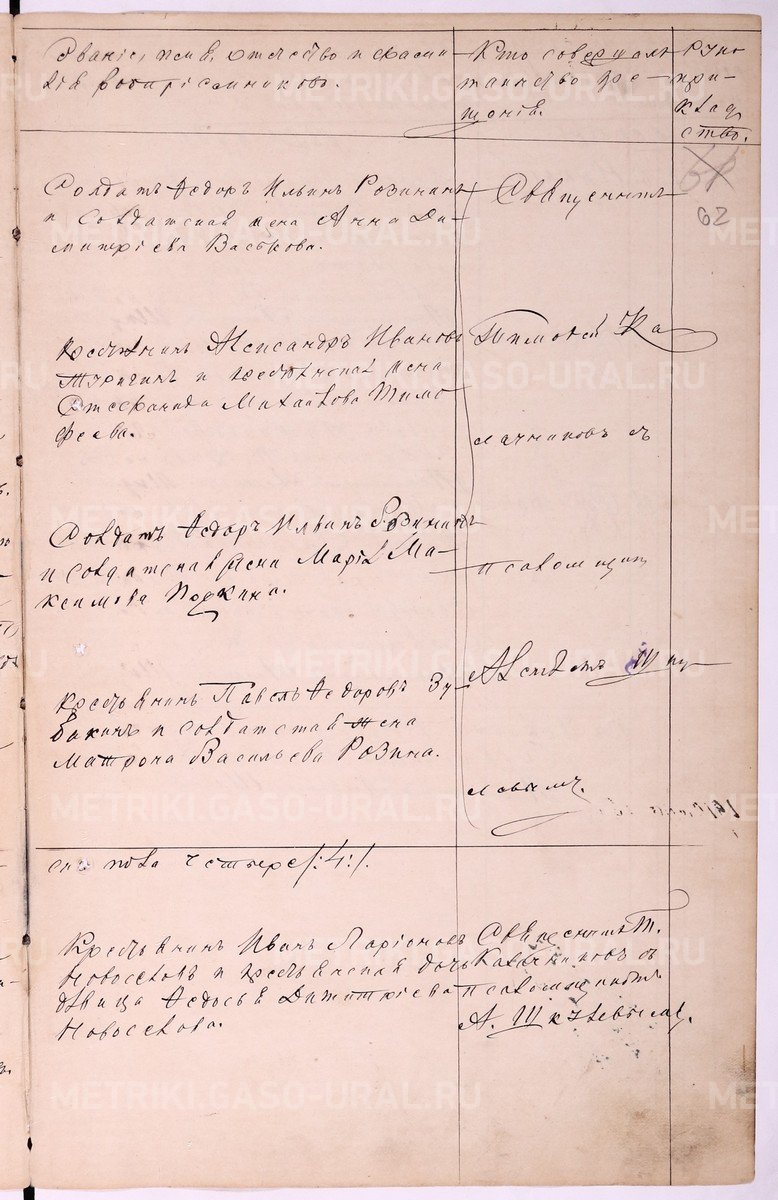 Званіе, имя, отчество и фами-
лія воспріемниковъ.
Кто совершалъ
таинство кре-
щенія.
Руко
при-
клад
ство.
62
Солдатъ Ѳедоръ Ильинъ Розининъ
и солдатская жена Анна Ди-
митріева Васькова.
Священникъ
Крестьянинъ Александръ Ивановъ
и крестьянская жена
Стефанида Михайлова Тимо
феева.
Тимофей Ка
лачниковъ съ
Солдатъ Ѳедоръ Ильинъ Розининъ
и солдатская жена Марія Ма-
ксимова
псаломщик
Крестьянинъ Павелъ Ѳедоровъ Зу-
бакинъ и солдатская жена
Матрона Васильева Розина.
полa четыре /:4:/.
Крестьянинъ Иванъ Ларіоновъ
Новоселовъ и крестьянская дочь
дѣвица Ѳедосья Димитріева
Новоселова.
Священникъ Т.
Калачниковъ съ
псаломщикомъ
А.
METRIKI.GASO-URAL.RU